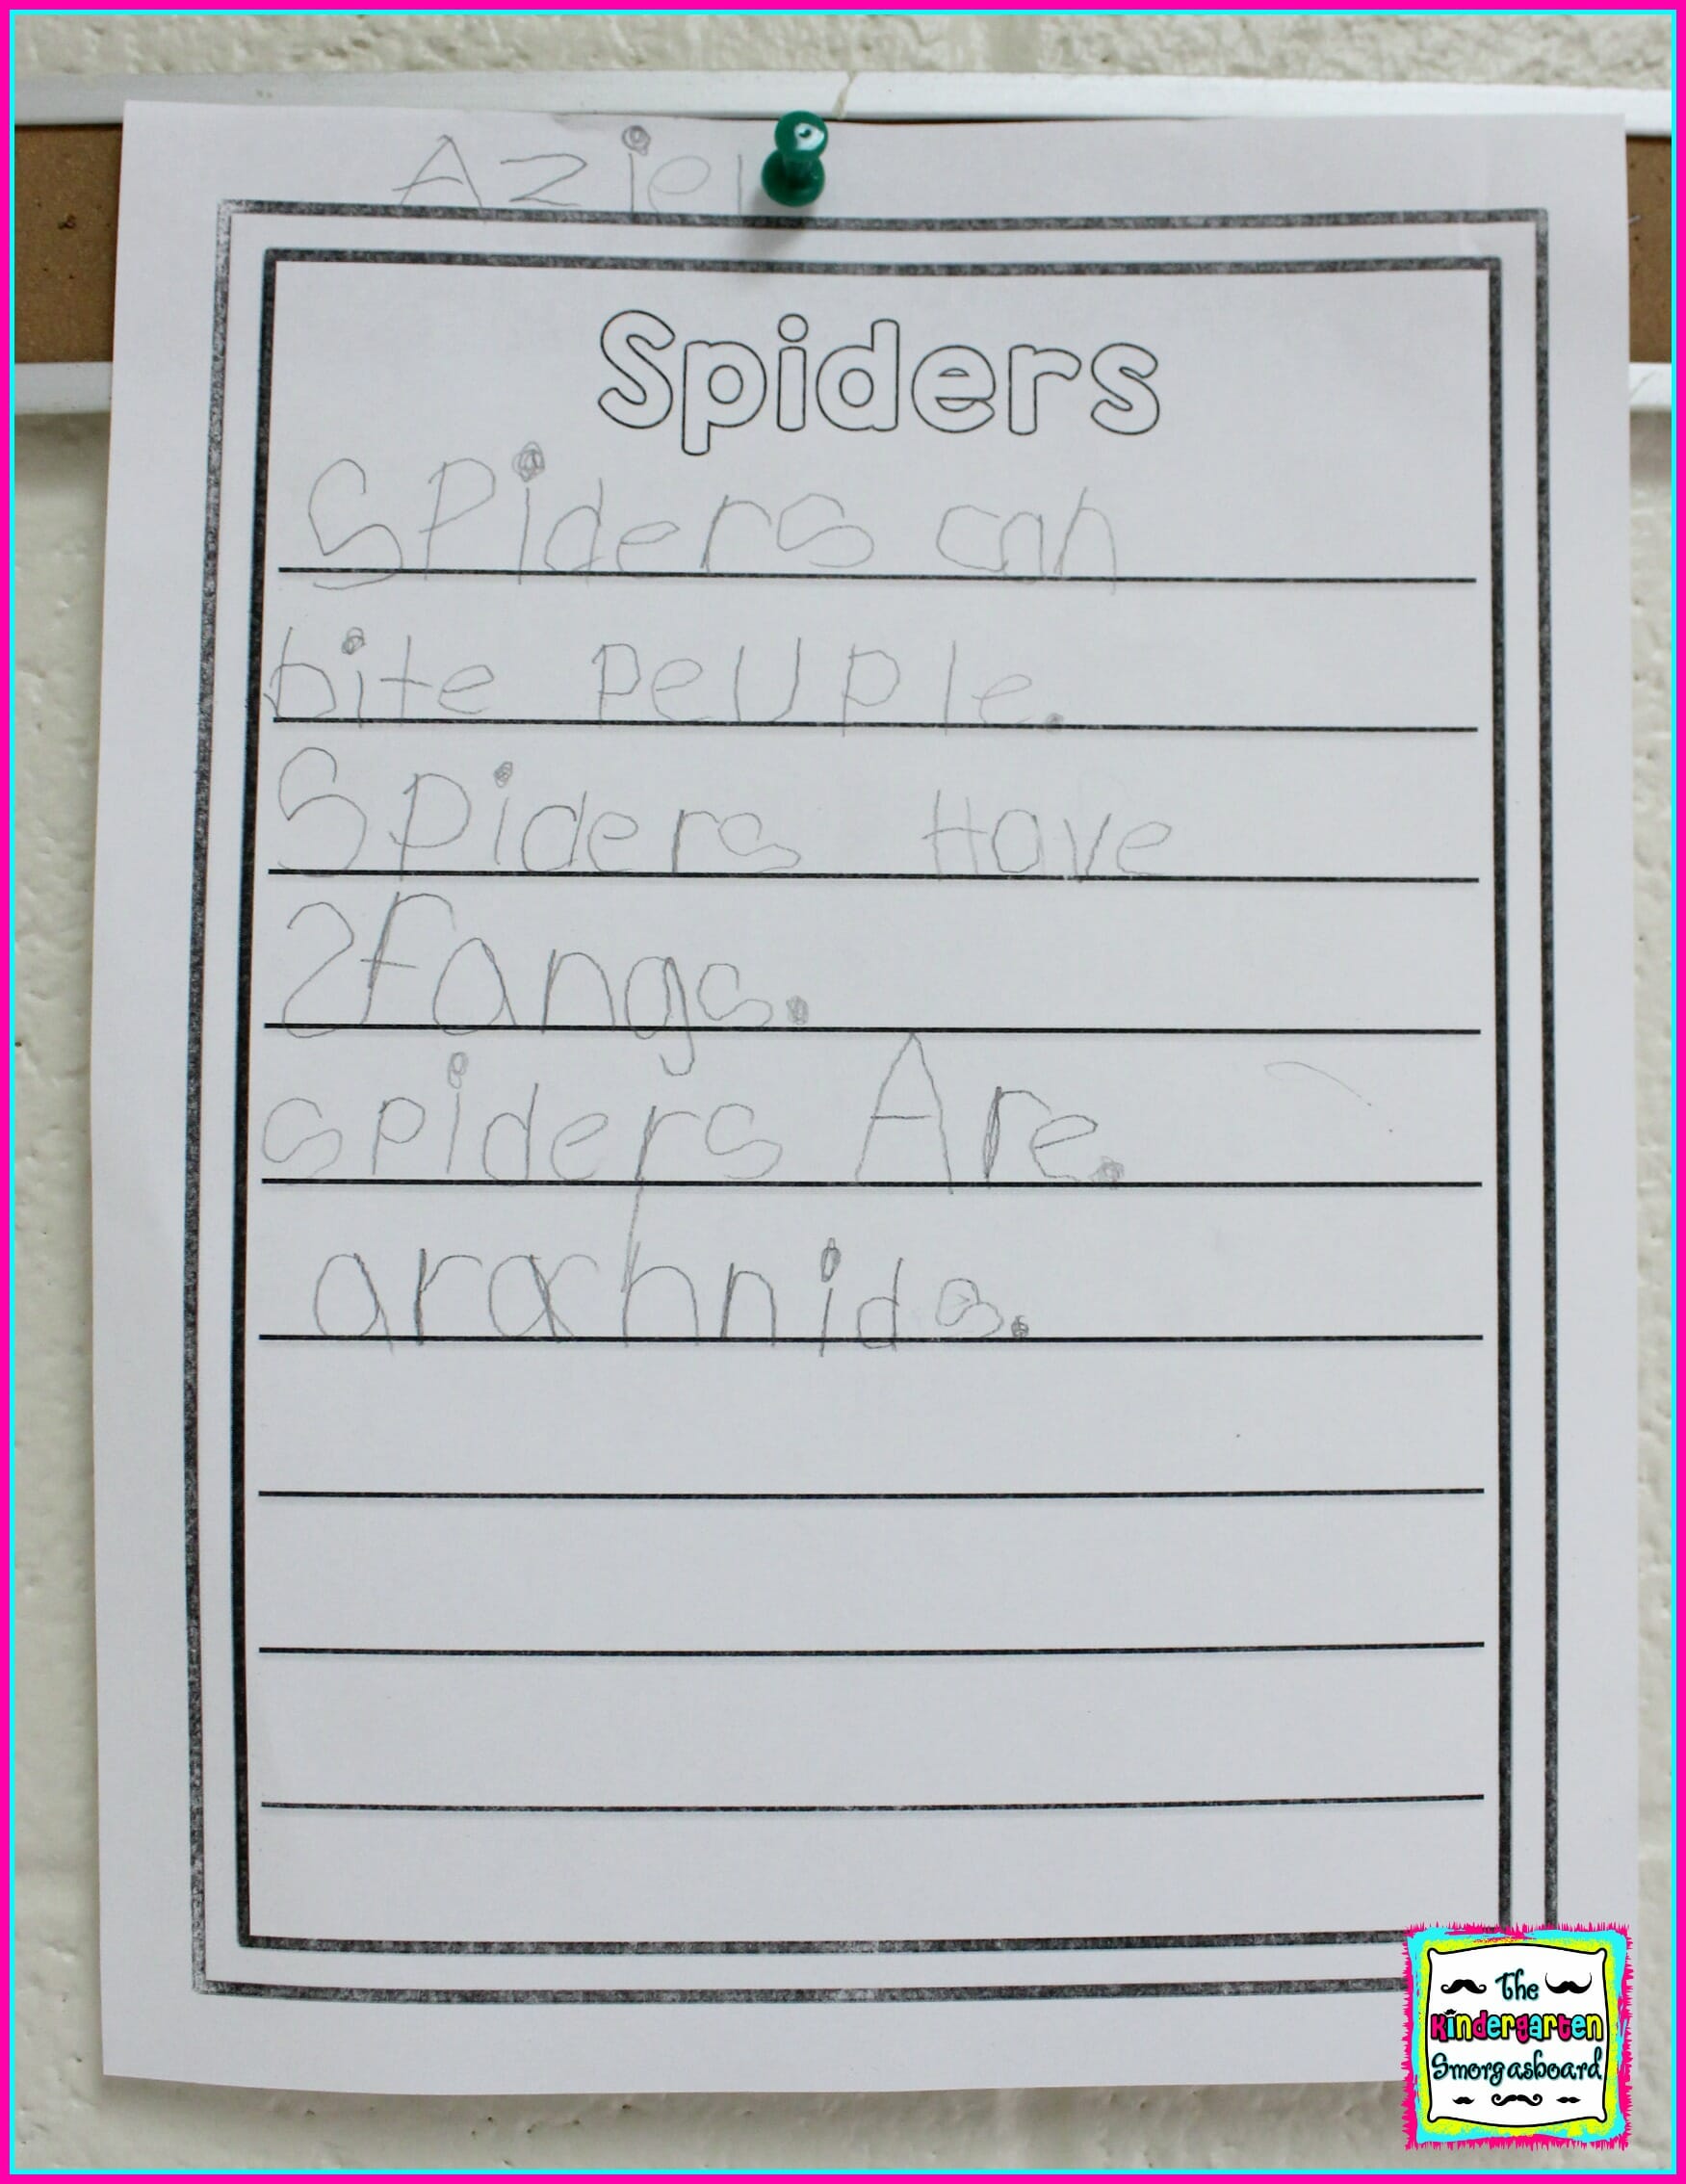 Aziel
Spiders
SPiders can
bite peUple.
Spiders Have
2fangs.
spiders Are.
arachnids.
The
Kindergarten
Smorgasboard